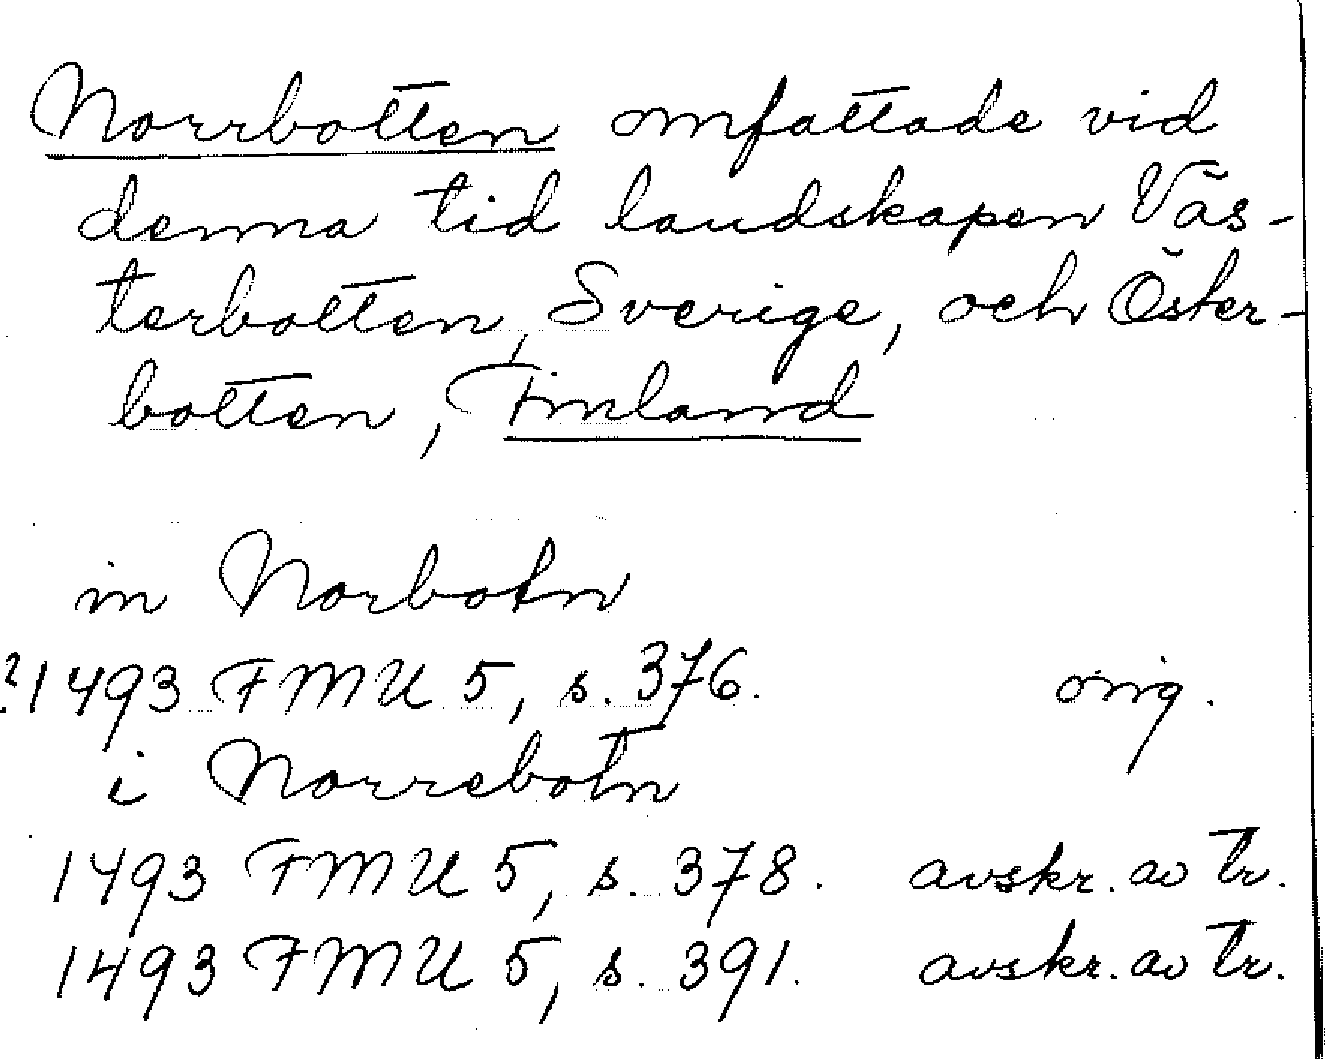 Norrbotten omfattade vid
denna tid landskapen Väs-
terbotten, Sverige, och Öster-
botten, Finland
in Norbotn
?1493 FMU 5, s. 376. orig.
i Norrebotn
1493 FMU 5, s. 378. avskr. av tr.
1493 FMU 5, s. 391. avskr. av tr.